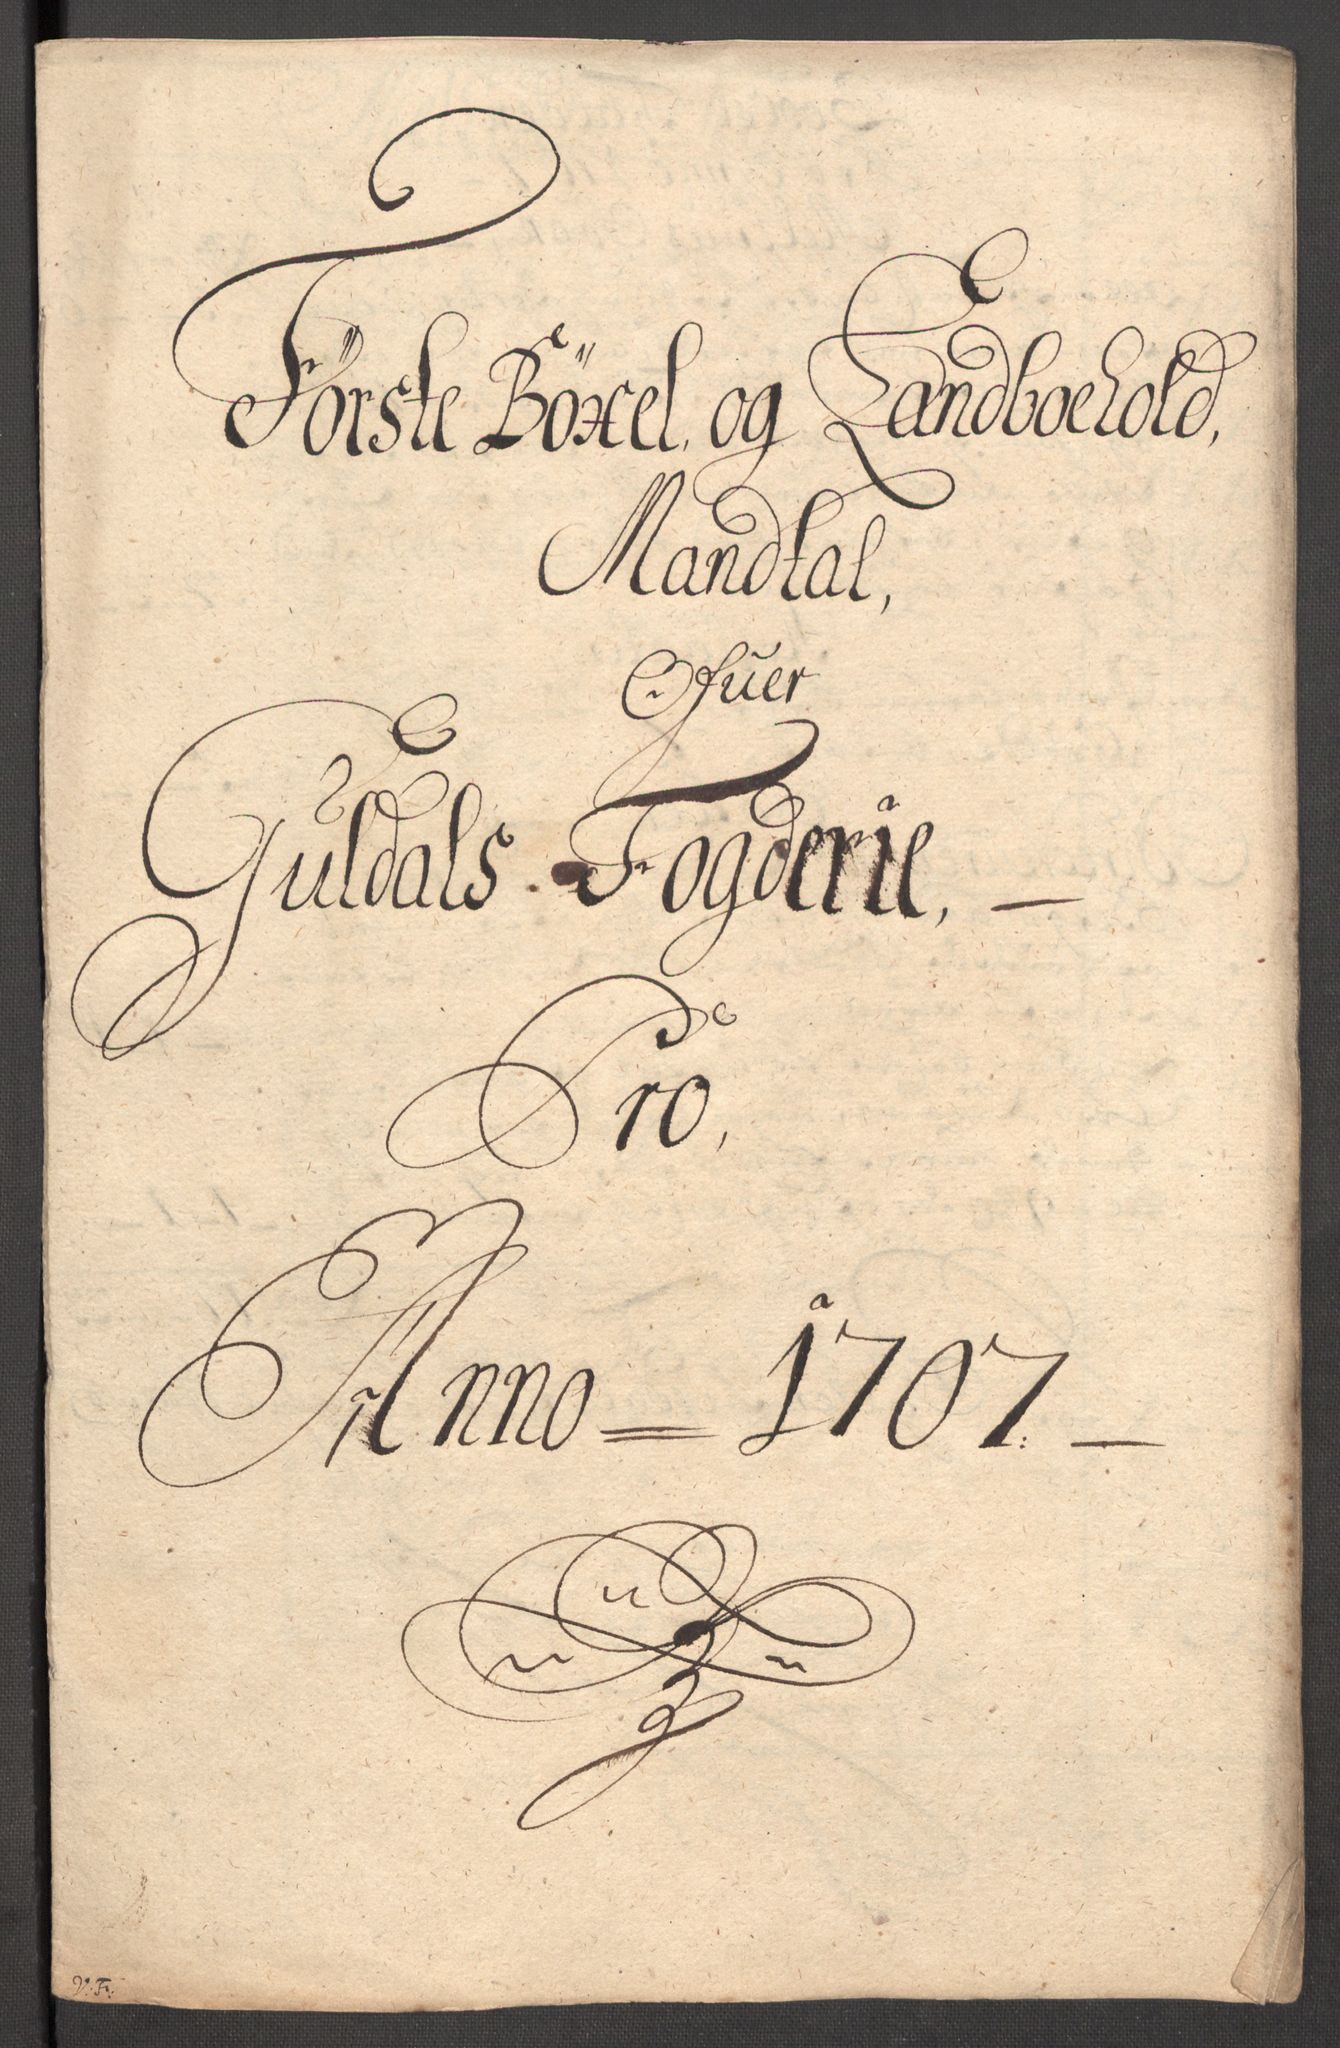 Förste Böxel, og Landboehold,
Mandtal,
Ofuer
Guldals Fogderie, —
Pro,
Anno = 1707. —
V: F: